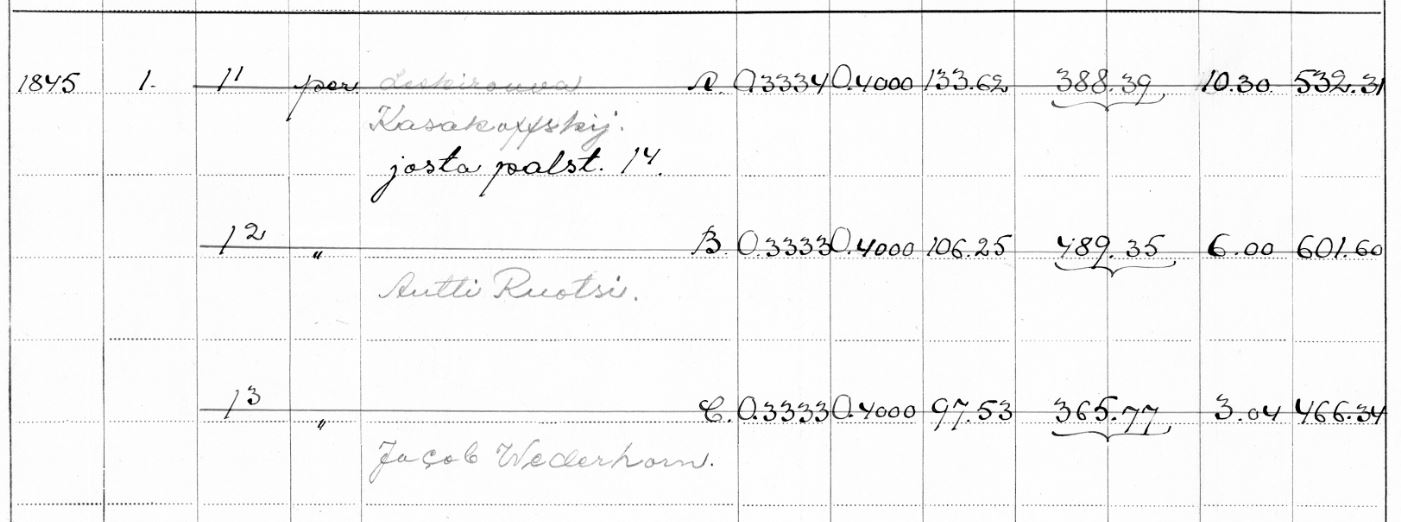 1845 1. 1¹ per Leskirouva A. 0.3334 0.4000 133.62 388.39 10.30 532.31
Kasakoffskij.
josta palst. 14.
1² " B. 0.3333 0.4000 106.25 489.35 6.00 601.60
Antti Ruotsi.
1³ " C. 0.3333 0.4000 97.53 365.77 3.04 466.34
Jacob Wederhorn.